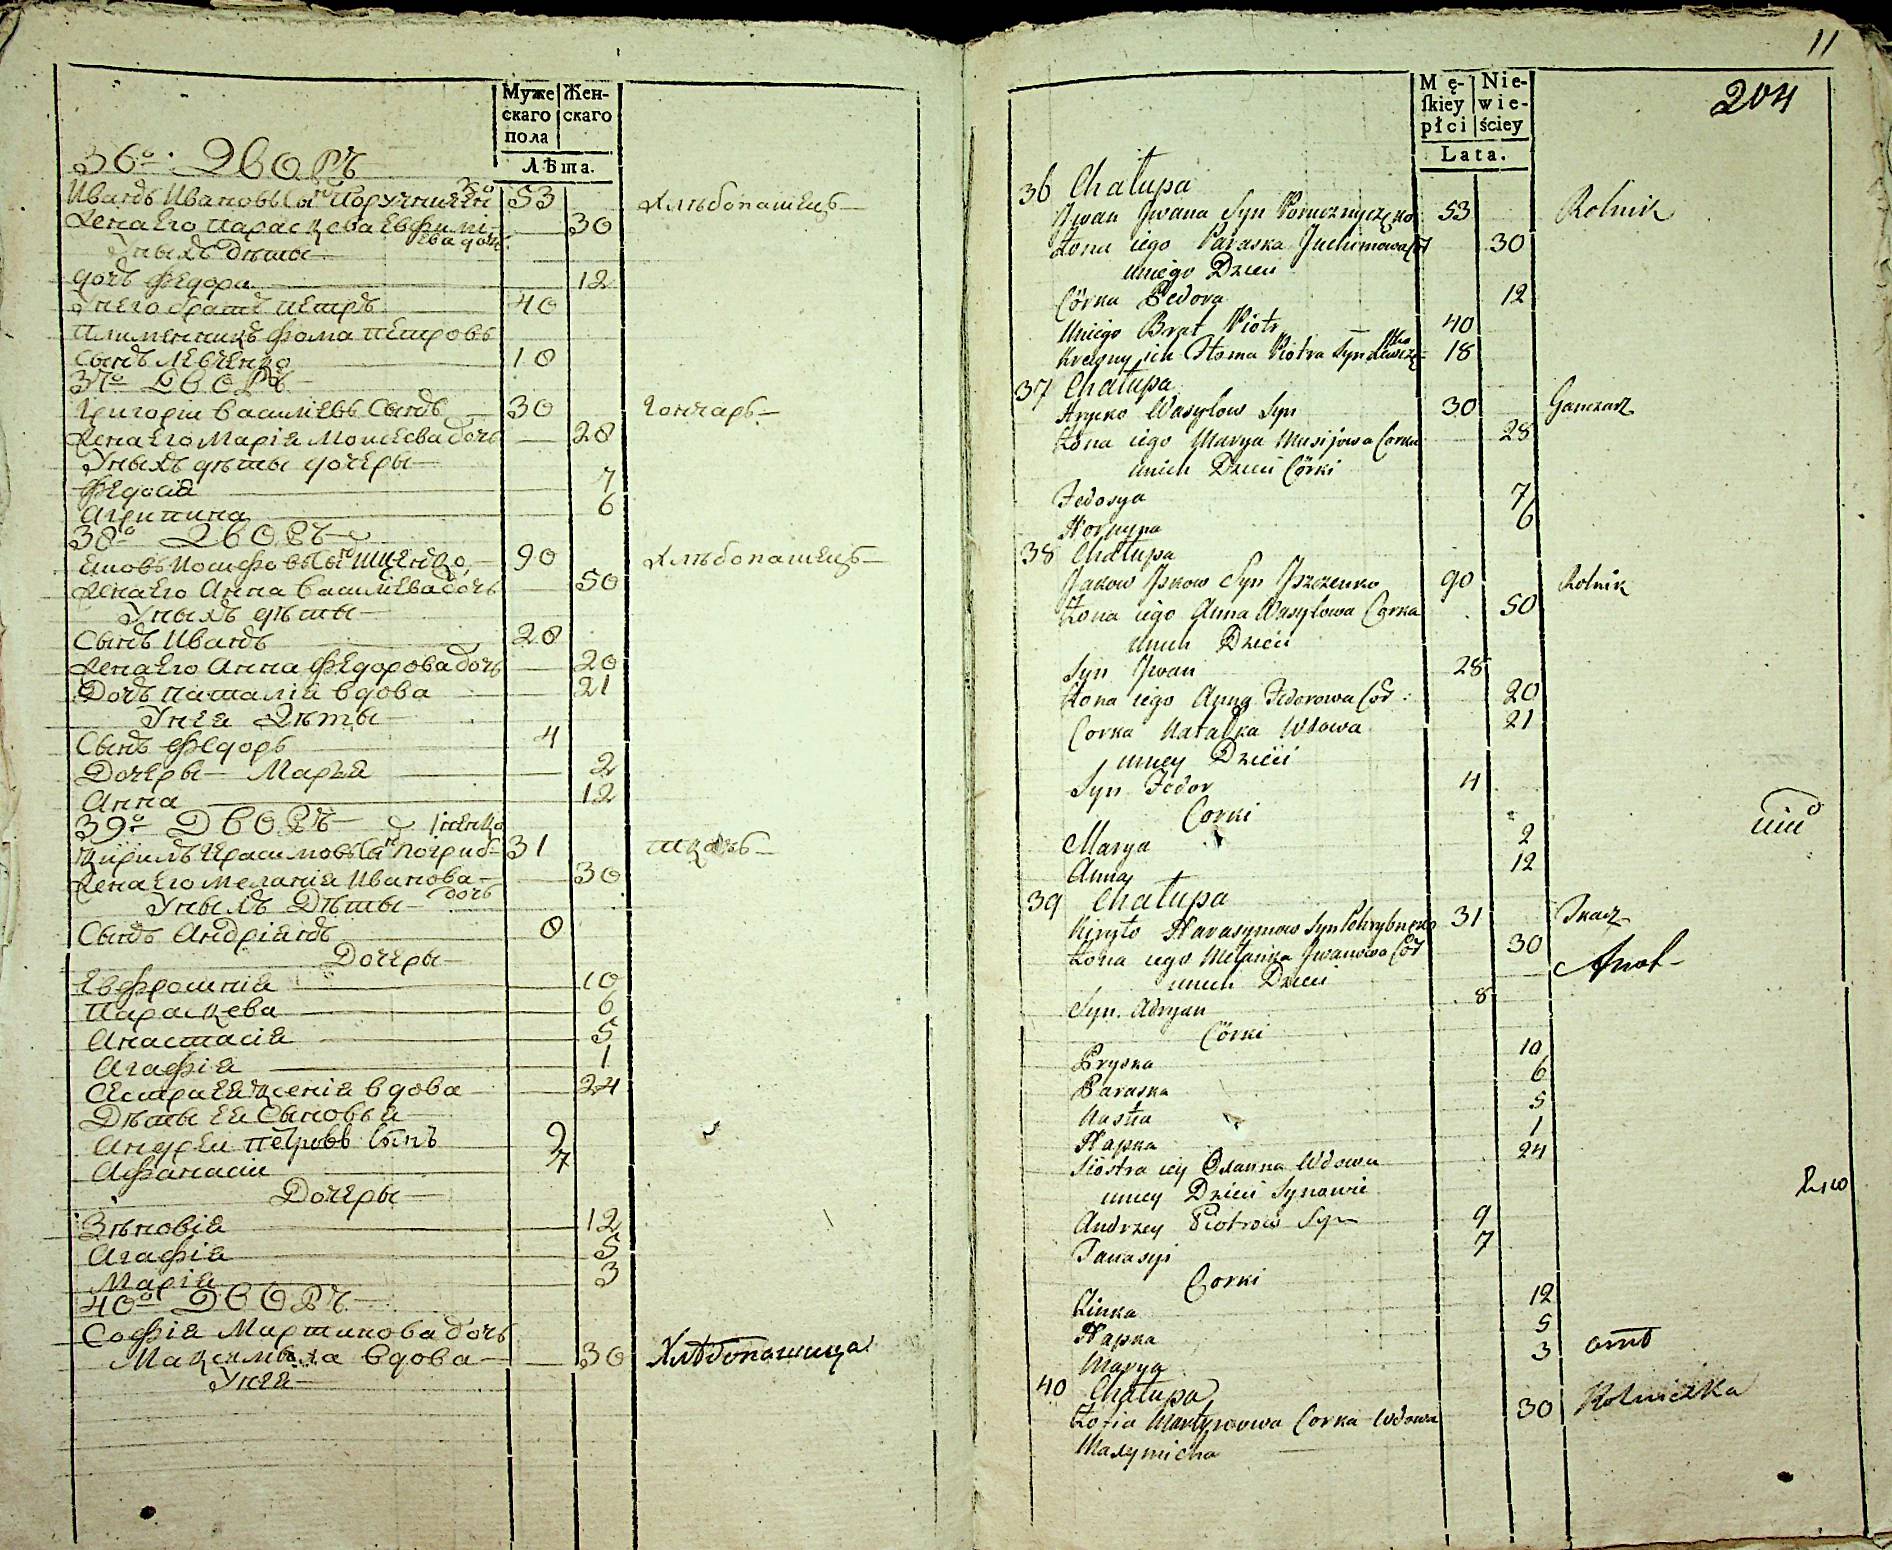 Муже Жен-
скаго скаго
пола
Лѣта.
36о. Дворъ
Иванъ Ивановъ Сынъ Поручниченко 53 Хлѣбопашецъ
Жена Его Параскева Евфиміева дочь 30
Уныхъ дѣты
дочъ Федора 12
Унего братъ Петръ 40
Плименникъ Фома Петровъ
Сынъ Левченко 18
37о Дворъ
Григорій Василіевъ Сынъ 30 Гончаръ
Жена Его Марія Моисеева дочь 28
Уныхъ дѣты дочеры
Федосія 7
Агрипина 6
38о Дворъ
Яковъ Іосифовъ Сынъ Ищенко 90 Хлѣбопашецъ
Жена Его Анна Василіева дочь 50
Уныхъ дѣты
Сынъ Иванъ 28
Жена Его Анна Федорова дочь 20
Дочъ Наталія вдова 21
Унея Дѣты
Сынъ Федоръ 4
Дочеры Марья 2
Анна 12
39о Дворъ
Кирилъ Герасимовъ Сынъ Погрибненко 31 ткачъ
Жена Его Меланія Иванова дочь 30
Уныхъ Дѣты
Сынъ Андріянъ 8
Дочеры
Евфросинія 10
Параскева 6
Анастасія 5
Агафія 1
Сестра ея Ксенія вдова 24
Дѣты ея Сыновья
Андрей Петровъ Сынъ 9
Афанасій 7
Дочеры
Зѣновія 12
Агафія 5
Марія 3
40о Дворъ
Софія Мартинова дочь
Максимиха вдова 30 Хлѣбопашица
Унея
11
204
Mę- Nie-
ſkiey wie-
płci ściey
Lata.
36 Chałupa
Jwan Jwana Syn Porucznyczęko 53 Rolnik
Żona iego Paraska Juchimowa Cor 30
Uniego Dzieci
Córka Fedora 12
Uniego Brat Piotr 40
Kreżny ich Homa Piotra Syn Lewczęko 18
37 Chałupa
Hrycko Wasylow Syn 30 Ganczarz
Żona iego Marya Musijowa Corka 28
Unich Dzieci Córki
Fedosya 7
Horpyna 6
38 Chałupa
Jakow Jskow Syn Jszczenko 90 Rolnik
Żona iego Anna Wasylowa Corka 50
Unich Dzieci
Syn Jwan 28
Żona iego Anna Fedorowa Cor: 20
Corka Natałka Wdowa 21
Uniey Dzieci
Syn Fedor 4
Corki
Marya 2
Anna 12
39 Chałupa
Kiryło Harasymow Syn Pohrybneńko 31 Tkacz
Żona iego Melanka Jwanowa Cor 30
Unich Dzieci
Syn Adryan 8
Córki
Pryska 10
Paraska 6
Nastia 5
Hapka 1
Siostra iey Oxanna Wdowa 24
Uniey Dzieci Synowie
Andrzey Piotrow Syn 9
Panasyi 7
Corki
Zinka 12
Hapka 5
Marya 3
40 Chałupa
Zofia Martynowa Corka Wdowa 30 Rolniczka
Maxymicha